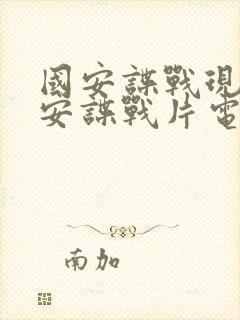 國安諜戰現
安諜戰片電
南加